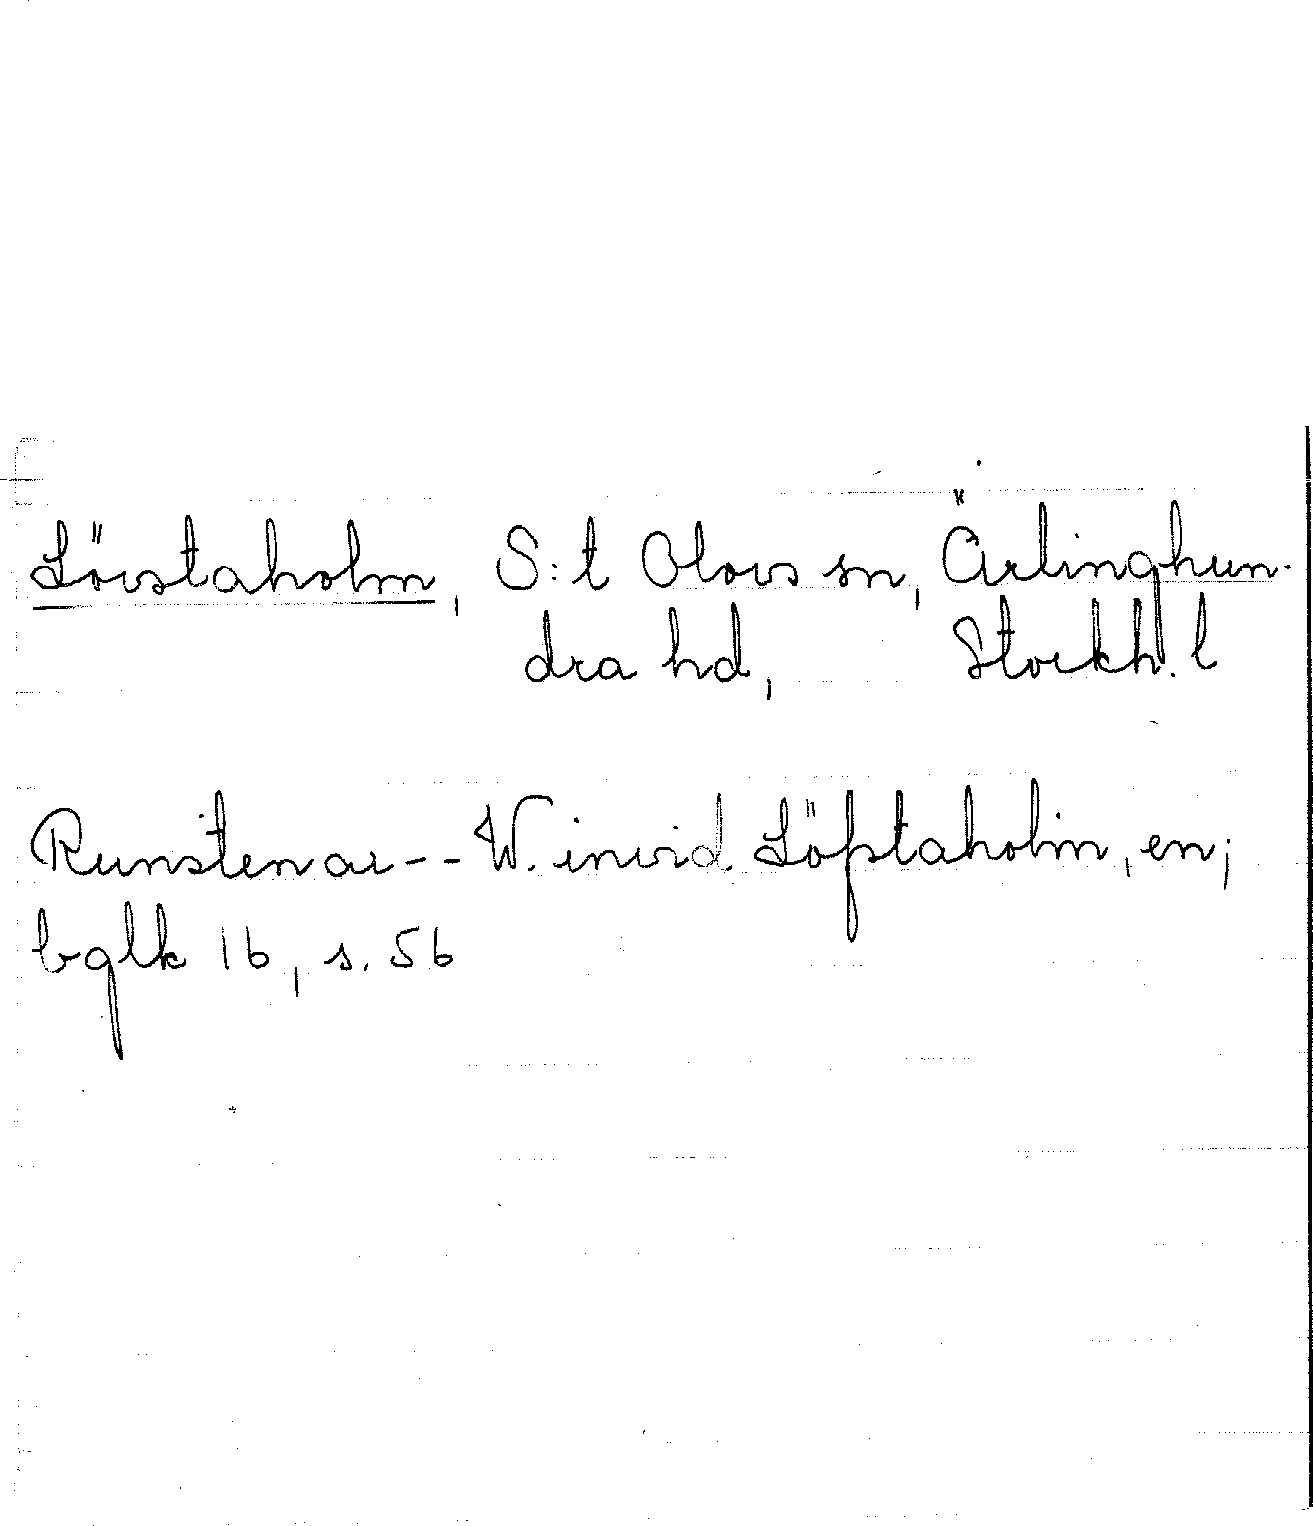 Lövstaholm, S:t Olovs sn, Ärlinghun-
dra hd, Stockh. l
Runstenar -- W. invid. Löfstaholm, en;
bglk 16, s. 56